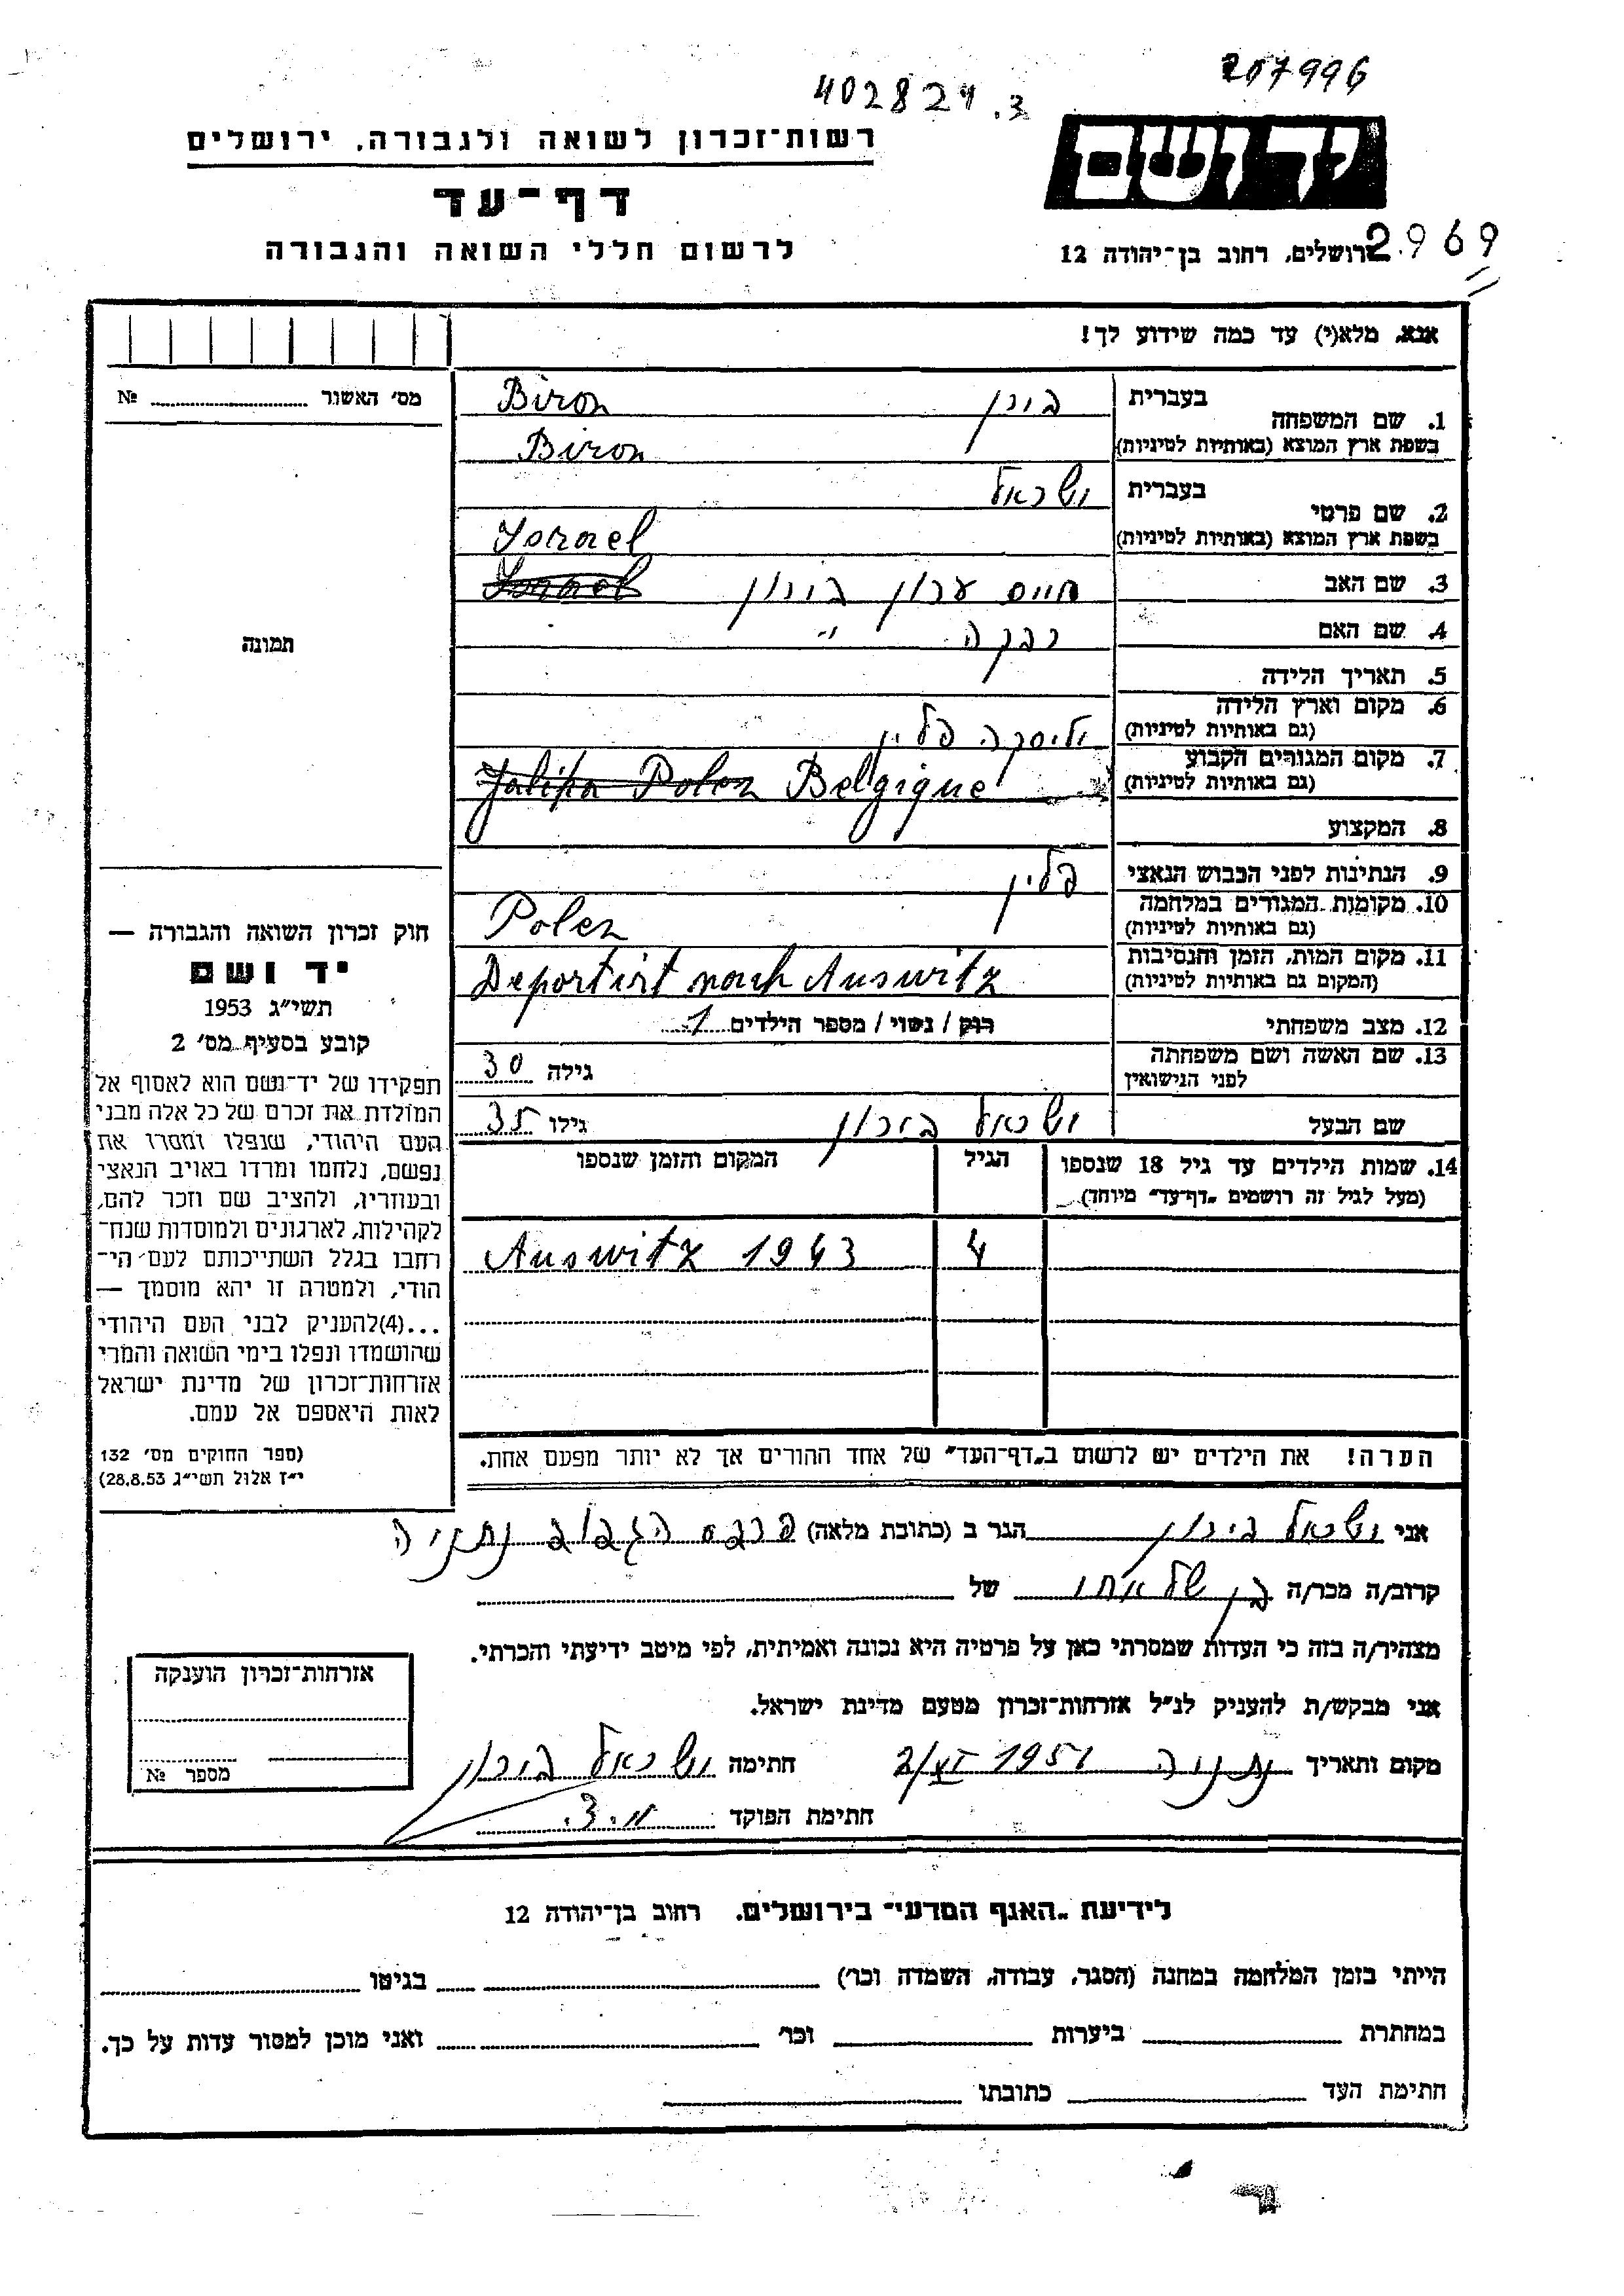 402824 .3
207996
רשות־זכרון לשואה ולגבורה, ירושלים
יד ושם
דף־עד
לרשום חללי השואה והגבורה
ירושלים, רחוב בן־יהודה 12
2969
אנא, מלא(י) עד כמה שידוע לך!
מס׳ האשור № 
תמונה
1. שם המשפחה
בעברית Biron בירון
בשפת ארץ המוצא (באותיות לטיניות) Biron
2. שם פרטי
בעברית ישראל
בשפת ארץ המוצא (באותיות לטיניות) Israel
3. שם האב חיים ערון בירון Israel
4. שם האם רבקה ״
5. תאריך הלידה
6. מקום וארץ הלידה
(גם באותיות לטיניות) פלין
7. מקום המגורים הקבוע
(גם באותיות לטיניות) Polen Belgique
8. המקצוע
9. הנתינות לפני הכבוש הנאצי פלין
10. מקומות המגורים במלחמה
(גם באותיות לטיניות) Polen
11. מקום המות, הזמן והנסיבות
(המקום גם באותיות לטיניות) Deportirt nach Auswitz
12. מצב משפחתי רוק / נשוי / מספר הילדים 1
13. שם האשה ושם משפחתה
לפני הנישואין גילה 30
שם הבעל ישראל בירון גילו 35
14. שמות הילדים עד גיל 18 שנספו הגיל המקום והזמן שנספו
(מעל לגיל זה רושמים „דף־עד״ מיוחד)
4 Auswitz 1943
הערה! את הילדים יש לרשום ב„דף־העד״ של אחד ההורים אך לא יותר מפעם אחת.
חוק זכרון השואה והגבורה —
יד ושם
תשי״ג 1953
קובע בסעיף מס׳ 2
תפקידו של יד־ושם הוא לאסוף אל
המולדת את זכרם של כל אלה מבני
העם היהודי, שנפלו ומסרו את
נפשם, נלחמו ומרדו באויב הנאצי
ובעוזריו, ולהציב שם וזכר להם,
לקהילות, לארגונים ולמוסדות שנח־
רבו בגלל השתייכותם לעם הי־
הודי, ולמטרה זו יהא מוסמך —
...(4)להעניק לבני העם היהודי
שהושמדו ונפלו בימי השואה והמרי
אזרחות־זכרון של מדינת ישראל
לאות היאספם אל עמם.
(ספר החוקים מס׳ 132
י״ז אלול תשי״ג 28.8.53)
אני ישראל בירון הגר ב (כתובת מלאה) נתניה
קרוב/ה מכר/ה בן של אחי של
מצהיר/ה בזה כי העדות שמסרתי כאן על פרטיה היא נכונה ואמיתית, לפי מיטב ידיעתי והכרתי.
אני מבקש/ת להעניק לנ״ל אזרחות־זכרון מטעם מדינת ישראל.
מקום ותאריך נתניה 2/XI 195 חתימה ישראל בירון
חתימת הפוקד
אזרחות־זכרון הוענקה
מספר №
לידיעת „האגף המדעי״ בירושלים, רחוב בן־יהודה 12
הייתי בזמן המלחמה במחנה (הסגר, עבודה, השמדה וכו׳) בגיטו
במחתרת ביערות וכו׳ ואני מוכן למסור עדות על כך.
חתימת העד כתובתו